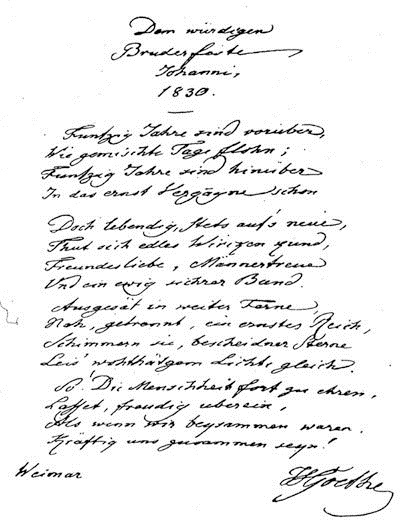 Dem würdigen
Bruderfeste
Johanni,
1830.
Funfzig Jahre sind vorüber,
Wie gemischte Tage flohn;
Funfzig Jahre sind hinüber
In das ernst Vergangne schon
Doch lebendig, stets auf's neue,
Thut sich edles Wirken kund,
Freundesliebe, Männertreue
Und ein ewig sichrer Band.
Ausgesät in weiter Ferne,
Nah, getrennt, ein ernstes Reich,
Schimmern sie, bescheidner Sterne
Leis' wohlthätgem Lichte gleich.
So! Die Menschheit fort zu ehren,
Lasset, freudig überein,
Als wenn wir beysammen waren,
Kräftig uns zusammen seyn!
Weimar
JWGoethe